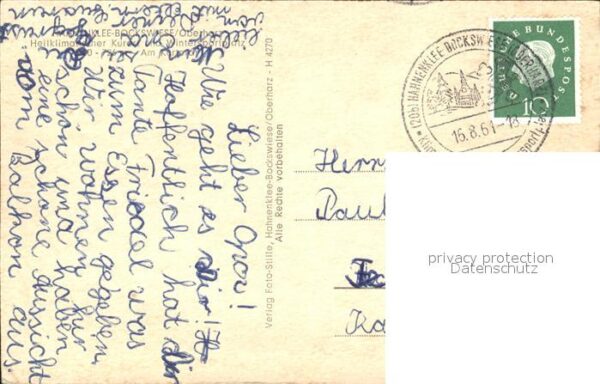 HAHNENKLEE-BOCKSWIESE/Oberharz
Heilklimatischer Kurort und Wintersportplatz
Am
Verlag Foto-Stille, Hahnenklee-Bockswiese/Oberharz - H 4270
Alle Rechte vorbehalten
Lieber Opa!
Wie geht es dir!
Hoffentlich hat dir
Tante Friedel was
zum Essen gegeben.
Wir wohnen hir
schön und haben
eine schöne Aussicht
vom Balkon aus.
(20b) HAHNENKLEE-BOCKSWIESE (OBERHARZ)
16.8.61-18
DEUTSCHE BUNDESPOST
10
Herrn
Paul
Ka
privacy protection
Datenschutz